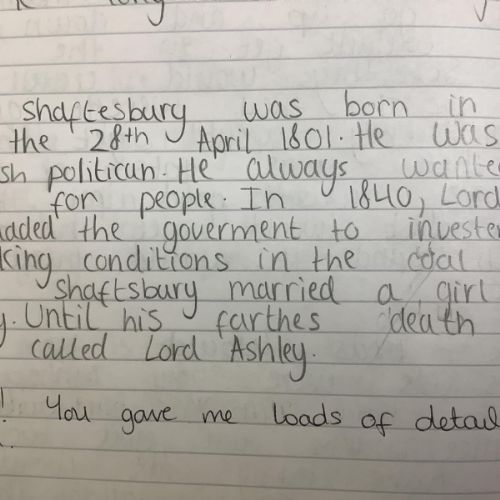 shaftesbury was born in
the 28th April 1801. He was
sh politican. He always wante
for people. In 1840, Lord
aded the goverment to invester
king conditions in the coal
shaftsbury married a girl
y. Until his farthes death
called Lord Ashley.
! You gave me loads of detail